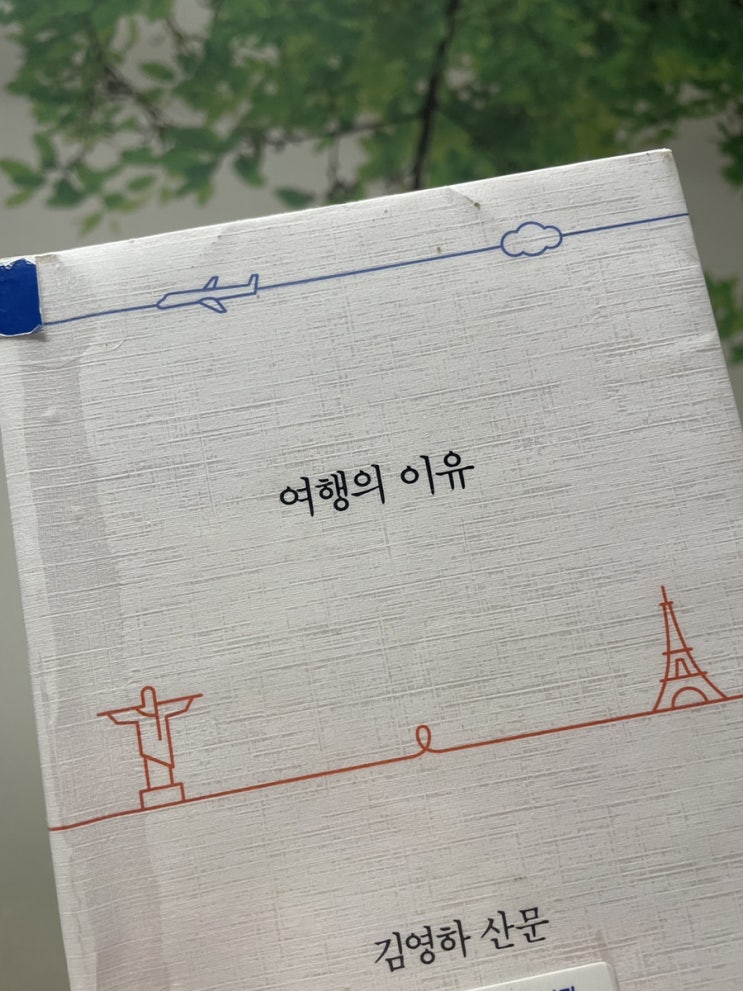 여행의 이유
김영하 산문